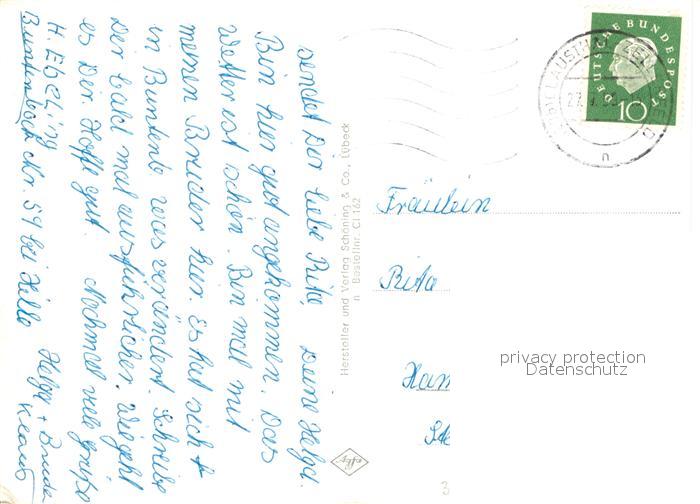 sendet Dir liebe Rita, Deine Helga.
Bin hier gut angekommen. Das
Wetter ist schön. Bin mal mit
meinem Bruder hier. Es hat sich
in Buntenb. was verändert. Schreibe
Dir bald mal ausführlicher. Wie geht
es Dir. Hoffe gut. Nochmal viele Grüße
Helga + Bruder
Klaus
H. Ebeling
Buntenbock Nr. 59 bei Hille
Hersteller und Verlag Schöning & Co., Lübeck
Bestellnr. Cl 162
Agfa
DEUTSCHE BUNDESPOST
10
CLAUSTHAL-ZELLERFELD
n
Fräulein
Rita
Han
privacy protection
Datenschutz
3